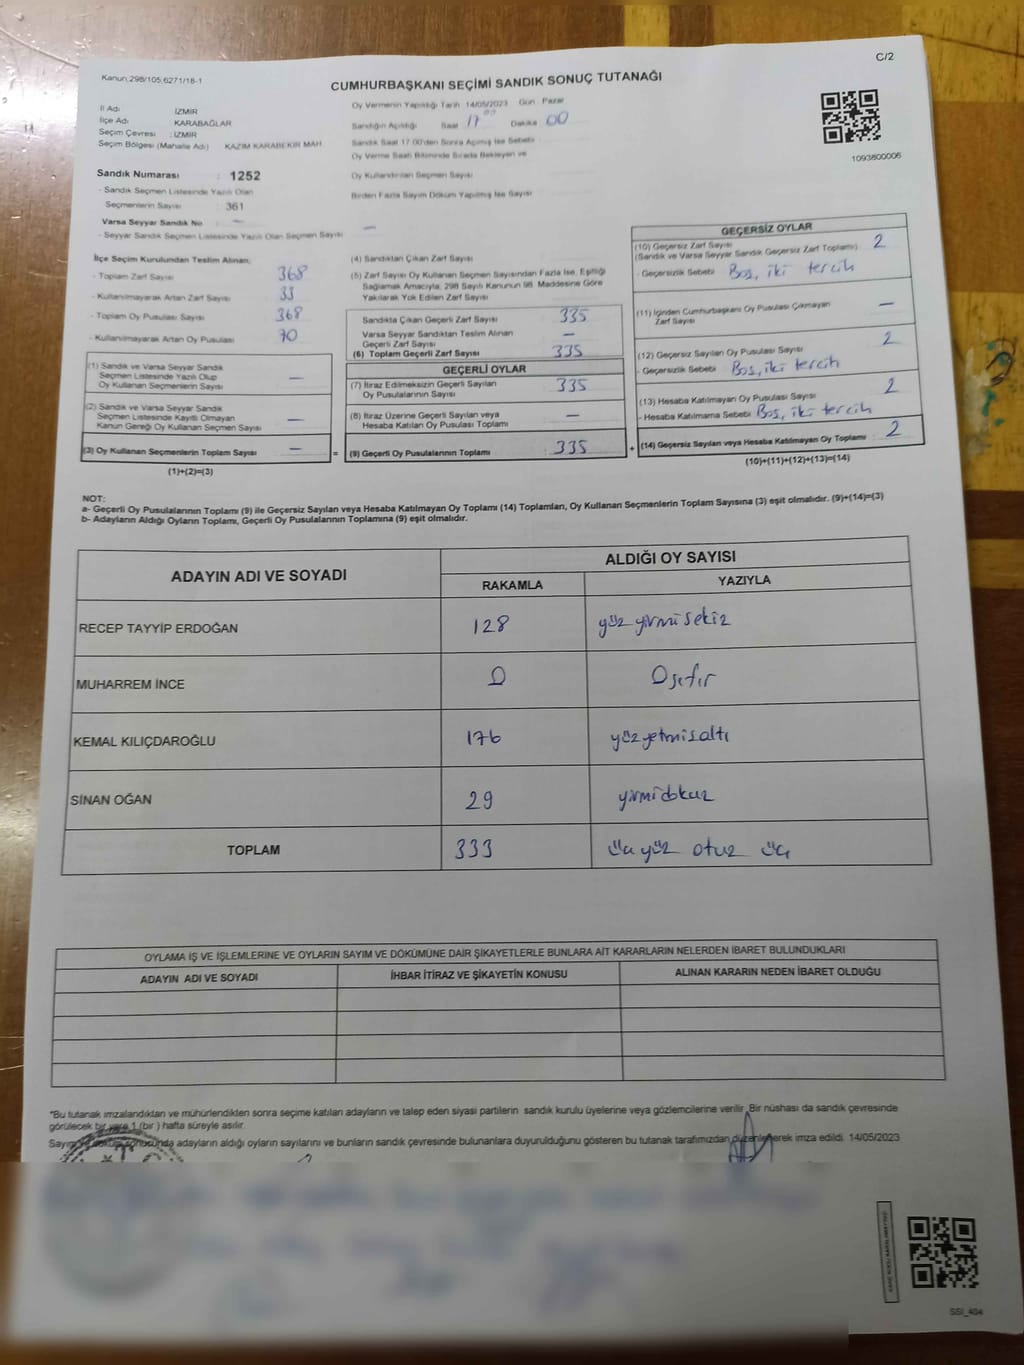 C/2
Kanun;298/105,6271/18-1
CUMHURBAŞKANI SEÇİMİ SANDIK SONUÇ TUTANAĞI
İl Adı İZMİR
İlçe Adı KARABAĞLAR
Seçim Çevresi : İZMİR
Seçim Bölgesi (Mahalle Adı) KAZIM KARABEKİR MAH
Sandık Numarası : 1252
- Sandık Seçmen Listesinde Yazılı Olan
Seçmenlerin Sayısı : 361
Varsa Seyyar Sandık No : -
- Seyyar Sandık Seçmen Listesinde Yazılı Olan Seçmen Sayısı -
Oy Vermenin Yapıldığı Tarih 14/05/2023 Gün Pazar
Sandığın Açıldığı Saat 17 00 Dakika 00
Sandık Saat 17.00'den Sonra Açılmış İse Sebebi
Oy Verme Saati Bitiminde Sırada Bekleyen ve
Oy Kullandırılan Seçmen Sayısı
Birden Fazla Sayım Döküm Yapılmış İse Sayısı
1093600006
İlçe Seçim Kurulundan Teslim Alınan;
- Toplam Zarf Sayısı 368
- Kullanılmayarak Artan Zarf Sayısı 33
- Toplam Oy Pusulası Sayısı 368
- Kullanılmayarak Artan Oy Pusulası 70
(1) Sandık ve Varsa Seyyar Sandık
Seçmen Listesinde Yazılı Olup
Oy Kullanan Seçmenlerin Sayısı -
(2) Sandık ve Varsa Seyyar Sandık
Seçmen Listesinde Kayıtlı Olmayan
Kanun Gereği Oy Kullanan Seçmen Sayısı -
(3) Oy Kullanan Seçmenlerin Toplam Sayısı -
(1)+(2)=(3)
=
(4) Sandıktan Çıkan Zarf Sayısı
(5) Zarf Sayısı Oy Kullanan Seçmen Sayısından Fazla İse, Eşitliği
Sağlamak Amacıyla, 298 Sayılı Kanunun 98. Maddesine Göre
Yakılarak Yok Edilen Zarf Sayısı
Sandıkta Çıkan Geçerli Zarf Sayısı 335
Varsa Seyyar Sandıktan Teslim Alınan
Geçerli Zarf Sayısı -
(6) Toplam Geçerli Zarf Sayısı 335
GEÇERLİ OYLAR
(7) İtiraz Edilmeksizin Geçerli Sayılan
Oy Pusulalarının Sayısı 335
(8) İtiraz Üzerine Geçerli Sayılan veya
Hesaba Katılan Oy Pusulası Toplamı -
(9) Geçerli Oy Pusulalarının Toplamı 335
+
GEÇERSİZ OYLAR
(10) Geçersiz Zarf Sayısı
(Sandık ve Varsa Seyyar Sandık Geçersiz Zarf Toplamı) 2
- Geçersizlik Sebebi Boş, iki tercih
(11) İçinden Cumhurbaşkanı Oy Pusulası Çıkmayan
Zarf Sayısı -
(12) Geçersiz Sayılan Oy Pusulası Sayısı 2
- Geçersizlik Sebebi Boş, iki tercih
(13) Hesaba Katılmayan Oy Pusulası Sayısı 2
- Hesaba Katılmama Sebebi Boş, iki tercih
(14) Geçersiz Sayılan veya Hesaba Katılmayan Oy Toplamı 2
(10)+(11)+(12)+(13)=(14)
NOT:
a- Geçerli Oy Pusulalarının Toplamı (9) ile Geçersiz Sayılan veya Hesaba Katılmayan Oy Toplamı (14) Toplamları, Oy Kullanan Seçmenlerin Toplam Sayısına (3) eşit olmalıdır. (9)+(14)=(3)
b- Adayların Aldığı Oyların Toplamı, Geçerli Oy Pusulalarının Toplamına (9) eşit olmalıdır.
ADAYIN ADI VE SOYADI ALDIĞI OY SAYISI
RAKAMLA YAZIYLA
RECEP TAYYİP ERDOĞAN 128 yüz yirmi sekiz
MUHARREM İNCE 0 0 sıfır
KEMAL KILIÇDAROĞLU 176 yüz yetmiş altı
SİNAN OĞAN 29 yirmi dokuz
TOPLAM 333 üç yüz otuz üç
OYLAMA İŞ VE İŞLEMLERİNE VE OYLARIN SAYIM VE DÖKÜMÜNE DAİR ŞİKAYETLERLE BUNLARA AİT KARARLARIN NELERDEN İBARET BULUNDUKLARI
ADAYIN ADI VE SOYADI İHBAR İTİRAZ VE ŞİKAYETİN KONUSU ALINAN KARARIN NEDEN İBARET OLDUĞU
*Bu tutanak imzalandıktan ve mühürlendikten sonra seçime katılan adayların ve talep eden siyasi partilerin sandık kurulu üyelerine veya gözlemcilerine verilir. Bir nüshası da sandık çevresinde
görülecek bir yere 1 (bir ) hafta süreyle asılır.
Sayım ve döküm sonucunda adayların aldığı oyların sayılarını ve bunların sandık çevresinde bulunanlara duyurulduğunu gösteren bu tutanak tarafımızdan düzenlenerek imza edildi. 14/05/2023
SSI_404